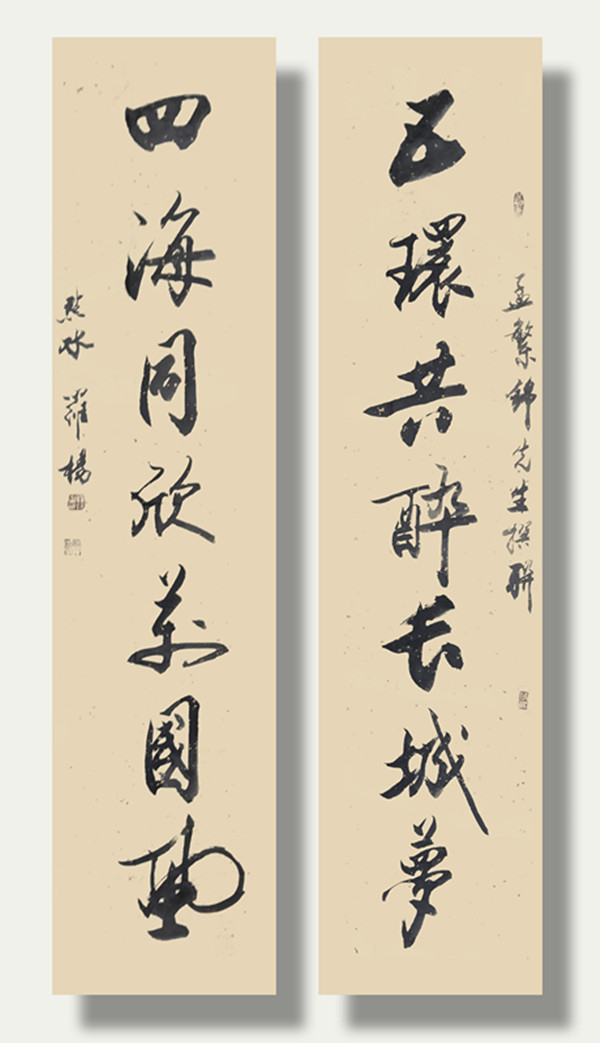 孟繁錦先生撰聯
五環共醉長城夢
四海同欣萬國
水 羅楊